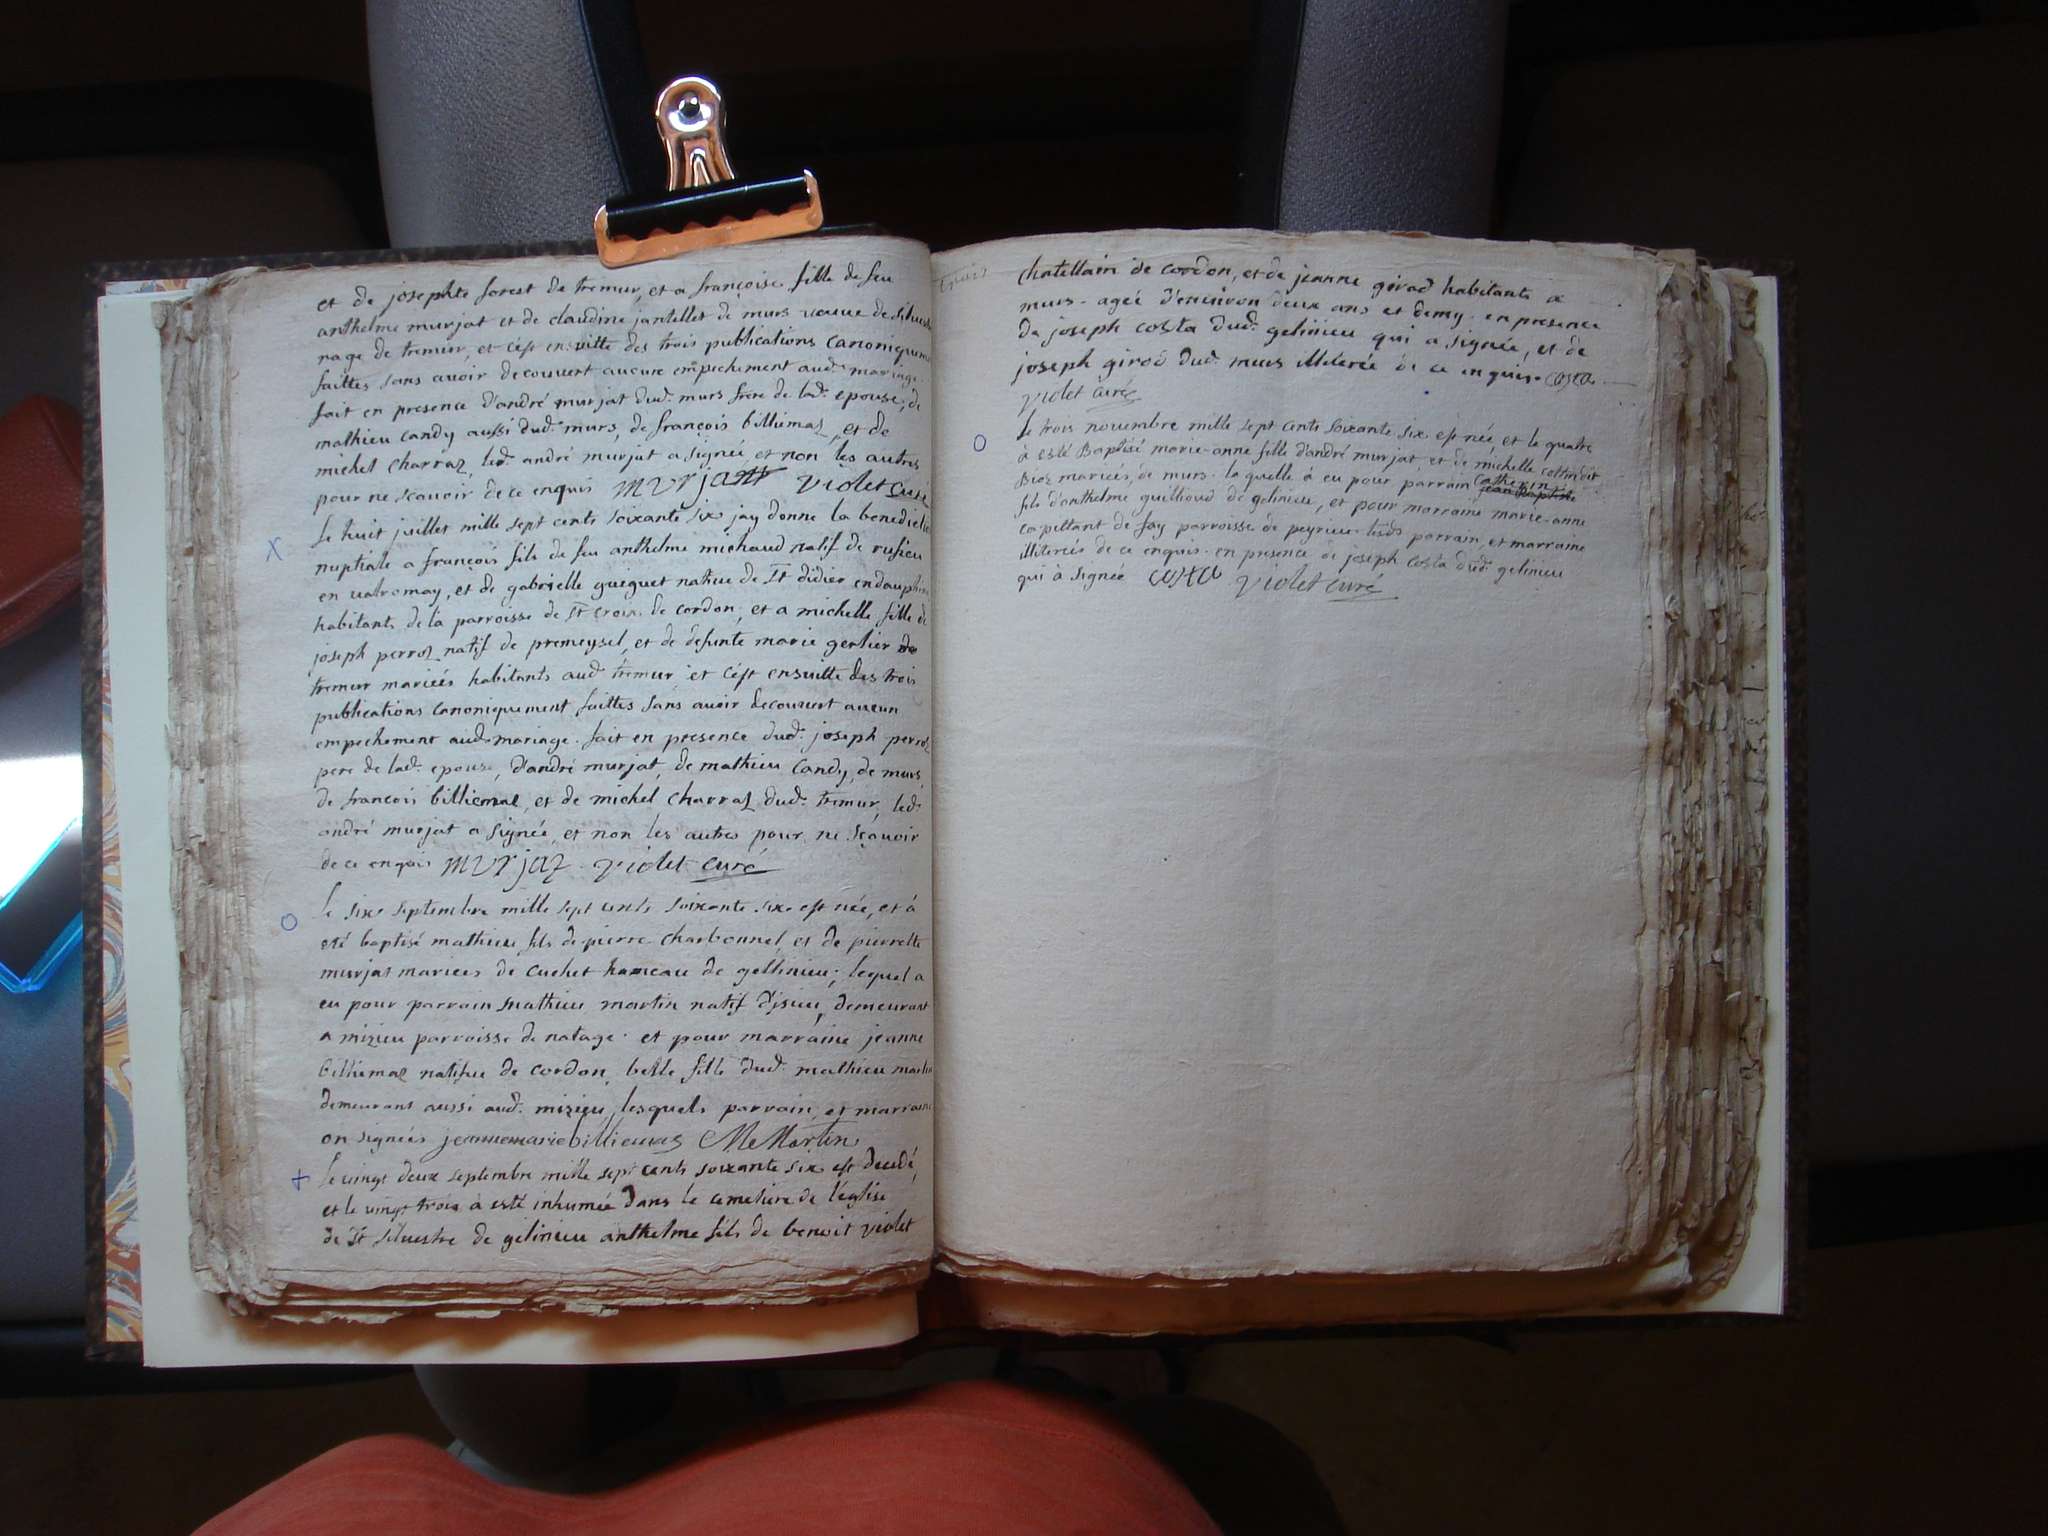 et de josephte forest de tremur, et a françoise fille de feu
anthelme murjat et de claudine jantellet de murs veuve de
nage de tremur, et c'est ensuitte des trois publications canoniquem
faittes sans avoir decouvert aucune empechement aud. mariage.
fait en presence d'andré murjat dud. murs frere de lad. epouse, de
mathieu candy aussi dud. murs, de françois billiemaz, et de
michel charraz, led. andré murjat a signée, et non les autres
pour ne sçavoir de ce enquis murjatt violet curé
X le huit juillet mille sept cents soixante six jay donne la benedictio
nuptiale a françois fils de feu anthelme michaud natif de rufieu
en valromay, et de gabrielle guiguet native de St didier en dauphin
habitants de la parroisse de St croix de cordon, et a michelle fille de
joseph perroz natif de premeysel, et de defunte marie gerlier de
tremur mariées habitants aud. tremur, et c'est ensuitte des trois
publications canoniquement faittes sans avoir decouvert aucun
empechement aud. mariage. fait en presence dud. joseph perroz
pere de lad. epouse, d'andré murjat, de mathieu candy, de murs,
de françois billiemaz, et de michel charraz dud. tremur, led.
andré murjat a signée, et non les autres pour ne sçavoir
de ce enquis murjaz violet curé
O le six septembre mille sept cents soixante six est née, et à
eté baptisé mathieu fils de pierre charbonnel, et de pierrette
murjat mariées de cuchet hameau de gellinieu; lequel a
eu pour parrain mathieu martin natif d'jsieu, demeurant
a mizieu parroisse de natage. et pour marraine jeanne
billiemaz natifue de cordon, belle fille dud. mathieu martin
demeurans aussi aud. mizieu, lesquels parrain, et marraine
on signées jeannemarie billiemaz Martin
+ le vingt deux septembre mille sept cents soixante six est decedé,
et le vingt trois à esté inhumée dans le cemetiere de l'église
de St silvestre de gelinieu anthelme fils de benoit violet
chatellain de cordon, et de jeanne girod habitants a
murs. ageé d'environ deux ans et demy. en presence
de joseph costa dud. gelinieu qui a signée, et de
joseph girod dud. murs illiterée de ce enquis. costa
violet curé
O le trois novembre mille sept cents soixante six est née et le quatre
à esté Baptisé marie-anne fille d'andré murjat, et de michelle
Bioz mariées, de murs. la quelle à eu pour parrain catherin jean Baptiste
fils d'anthelme guilloud de gelinieu, et pour marraine marie-anne
capittant de fay parroisse de peyrieu. lesds parrain, et marraine
illiterées de ce enquis. en presence de joseph costa dud. gelinieu
qui à signée costa violet curé